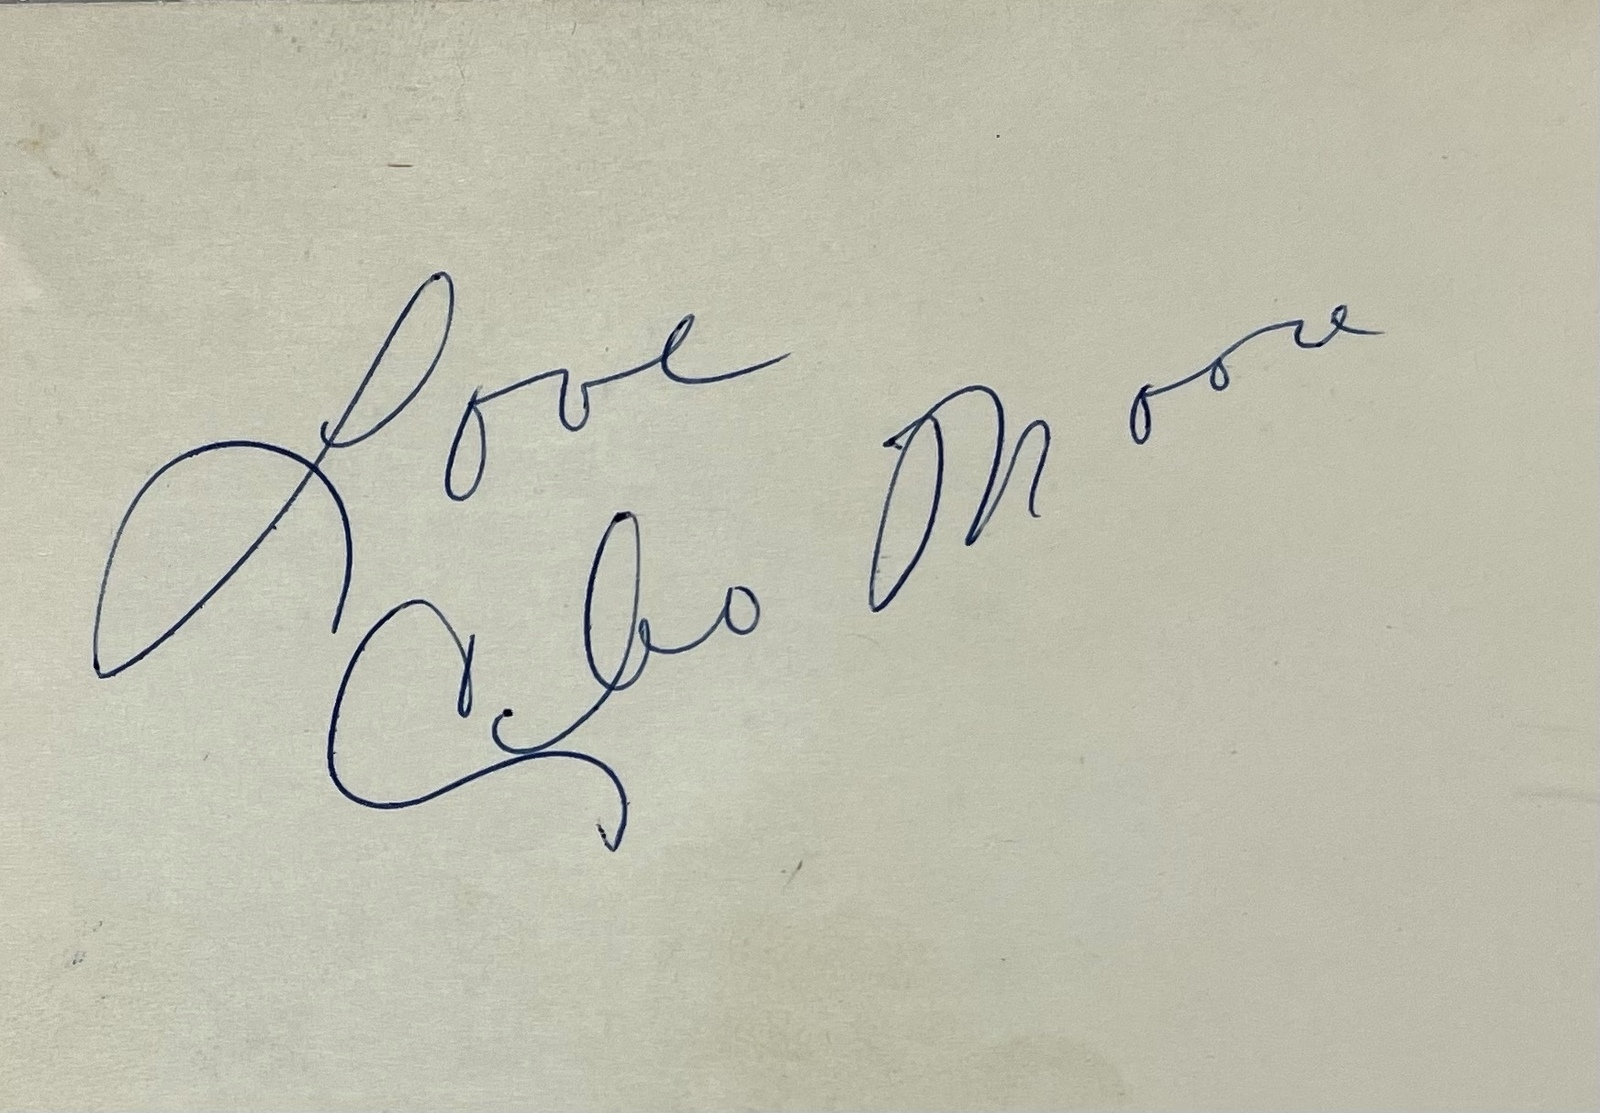 Love
Cleo Moore